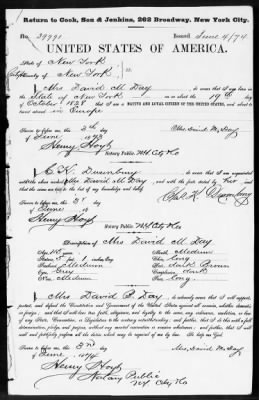 Return to Cook, Son & Jenkins, 262 Broadway, New York City.
No. 39991 Issued June 4/74
UNITED STATES OF AMERICA.
State of New York
County of New York } ss.
I Mrs David M Day do swear that I was born in the
State of New York on or about the 19th day
of October 1828 that I am a NATIVE AND LOYAL CITIZEN OF THE UNITED STATES, and about to
travel abroad in Europe
Sworn to before me, this 3d day
of June 1873
Mrs. David M. Day
Henry Hoyt
Notary Public NY City & Co
I C. K. Duenburg do swear that I am acquainted
with the above named Mrs David M Day and with the facts stated by her and
that the same are true to the best of my knowledge and belief.
Sworn to before me, this 3d day
of June 18
Henry Hoyt
Notary Public NY City & Co
Description of Mrs David M. Day
Age,
Mouth, Medium
Stature, 5 feet inches, Eng.
Chin, long
Forehead, Medium
Hair, dark Brown
Eyes, Grey
Complexion, dark
Nose, Medium
Face, long
I Mrs David M. Day do solemnly swear that I will support,
protect, and defend the Constitution and Government of the United States against all enemies, whether domestic
or foreign; and that I will bear true faith, allegiance, and loyalty to the same, any ordinance, resolution, or law
of any State, Convention, or Legislature to the contrary notwithstanding; and further, that I do this with a full
determination, pledge, and purpose, without any mental reservation or evasion whatsoever; and further, that I will
well and faithfully perform all the duties which may be required of me by law. So help me God.
Sworn to before me, this 3rd day
of June, 1874
Mrs. David M. Day
Henry Hoyt
Notary Public
NY City & Co